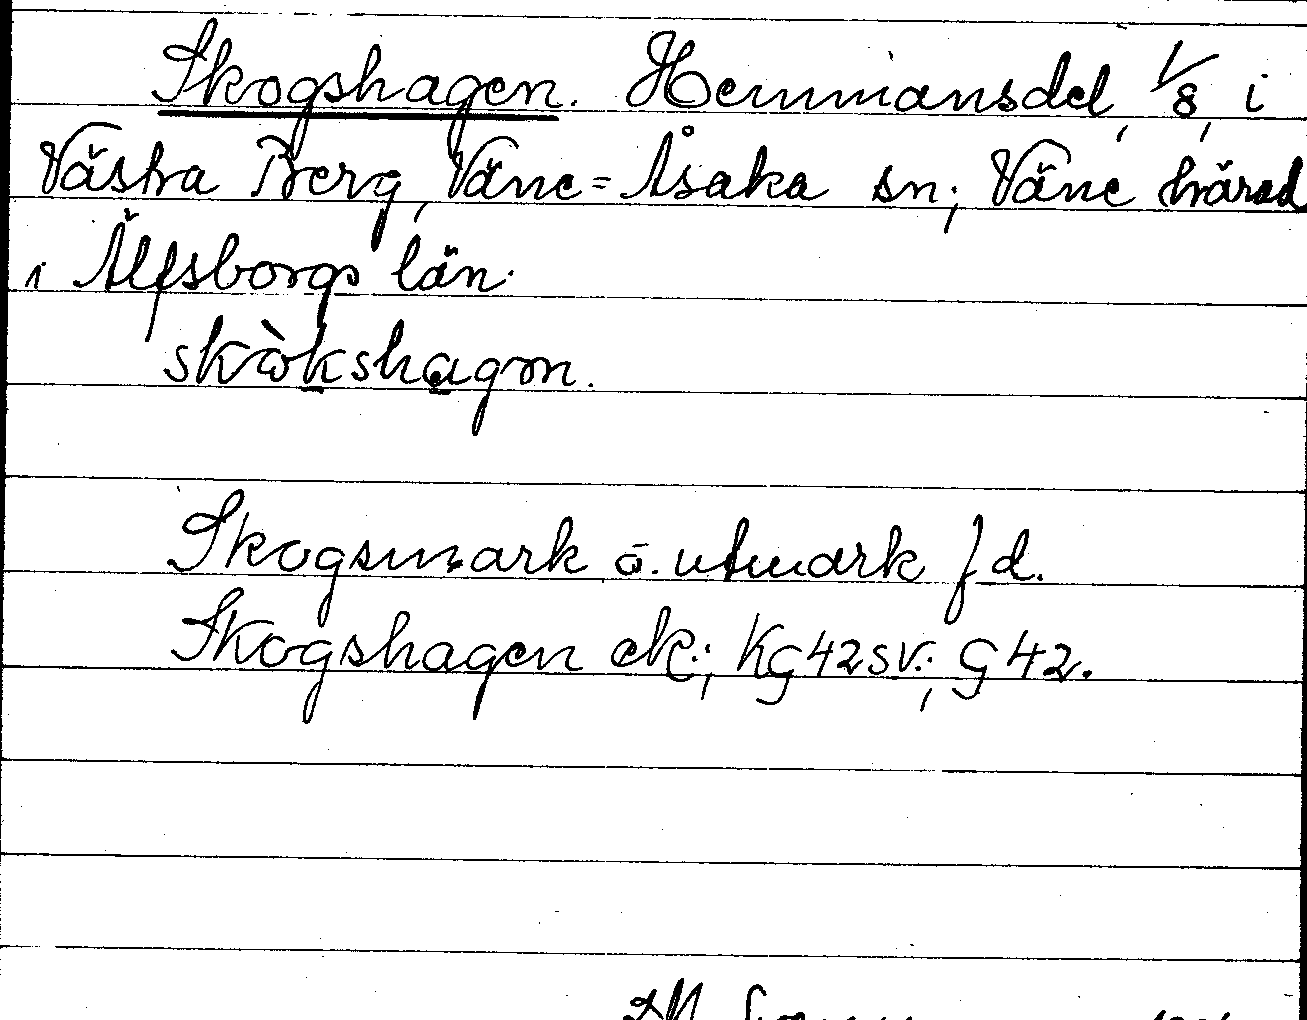 Skogshagen. Hemmansdel, 1/8, i
Västra Berg, Väne=Åsaka sn; Väne härad
i Älfsborgs län.
skòkshagɷn.
Skogsmark o. utmark f d.
Skogshagen ek.; KG42SV.; G42.